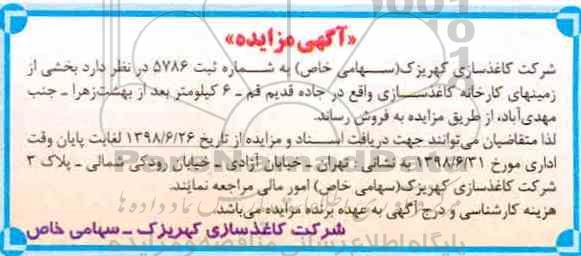 «آگهی مزایده»
شرکت کاغذسازی کهریزک(سهامی خاص) به شماره ثبت ۵۷۸۶ در نظر دارد بخشی از
زمینهای کارخانه کاغذسازی واقع در جاده قدیم قم ـ ۶ کیلومتر بعد از بهشت‌زهرا ـ جنب
مهدی‌آباد، از طریق مزایده به فروش رساند.
لذا متقاضیان می‌توانند جهت دریافت اسناد و مزایده از تاریخ ۱۳۹۸/۶/۲۶ لغایت پایان وقت
اداری مورخ ۱۳۹۸/۶/۳۱ به نشانی: تهران ـ خیابان آزادی ـ خیابان رودکی شمالی ـ پلاک ۳
شرکت کاغذسازی کهریزک(سهامی خاص) امور مالی مراجعه نمایند.
هزینه کارشناسی و درج آگهی به عهده برنده مزایده می‌باشد.
شرکت کاغذسازی کهریزک ـ سهامی خاص
پایگاه اطلاع رسانی مناقصه و مزایده